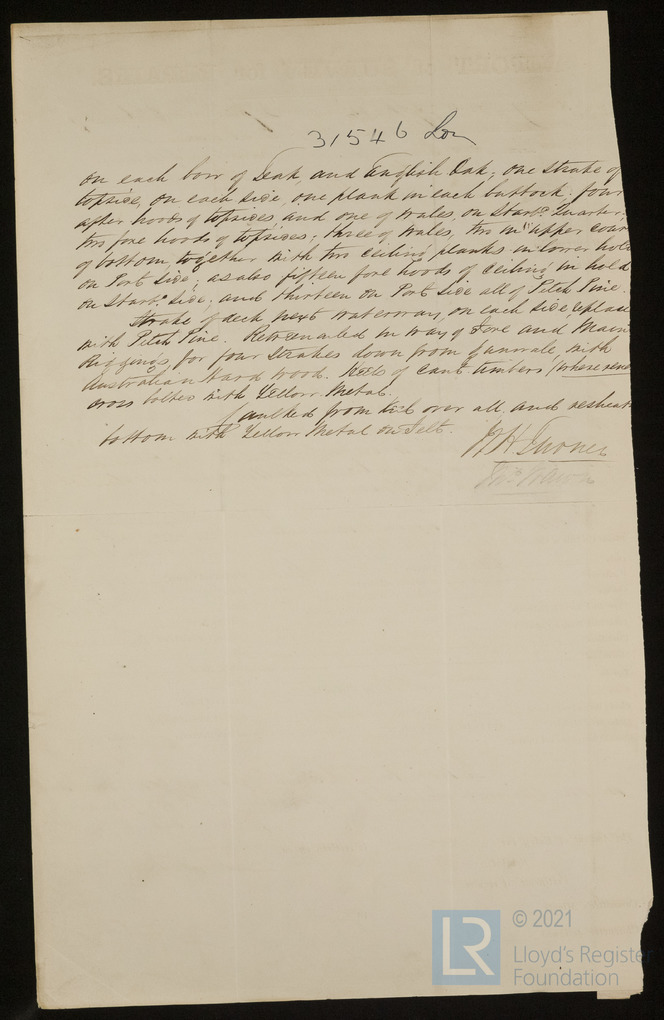 31546 Lon
on each bow of Teak, and English Oak; one strake of
topside, on each side, one plank in each buttock; four
after hoods of topsides and one of wales, on Starbd Quarter;
two fore hoods of topsides; three of wales, two in upper cour
of bottom, together with two ceiling planks in lower hold
on Port side; as also fifteen fore hoods of ceiling in hold
on Starbd side; and thirteen on Port side all of Pitch Pine.
Strake of deck next waterway, on each side replace
with Pitch Pine. Retreenailed in way of Fore and Main
Rigging's for four strakes down from gunwale, with
Australian Hard wood. Heels of cant timbers (where rene
cross bolted with Yellow Metal.
Caulked from keel over all, and resheat
bottom with Yellow Metal on Felt.
Turner
© 2021
LR
Lloyd's Register
Foundation